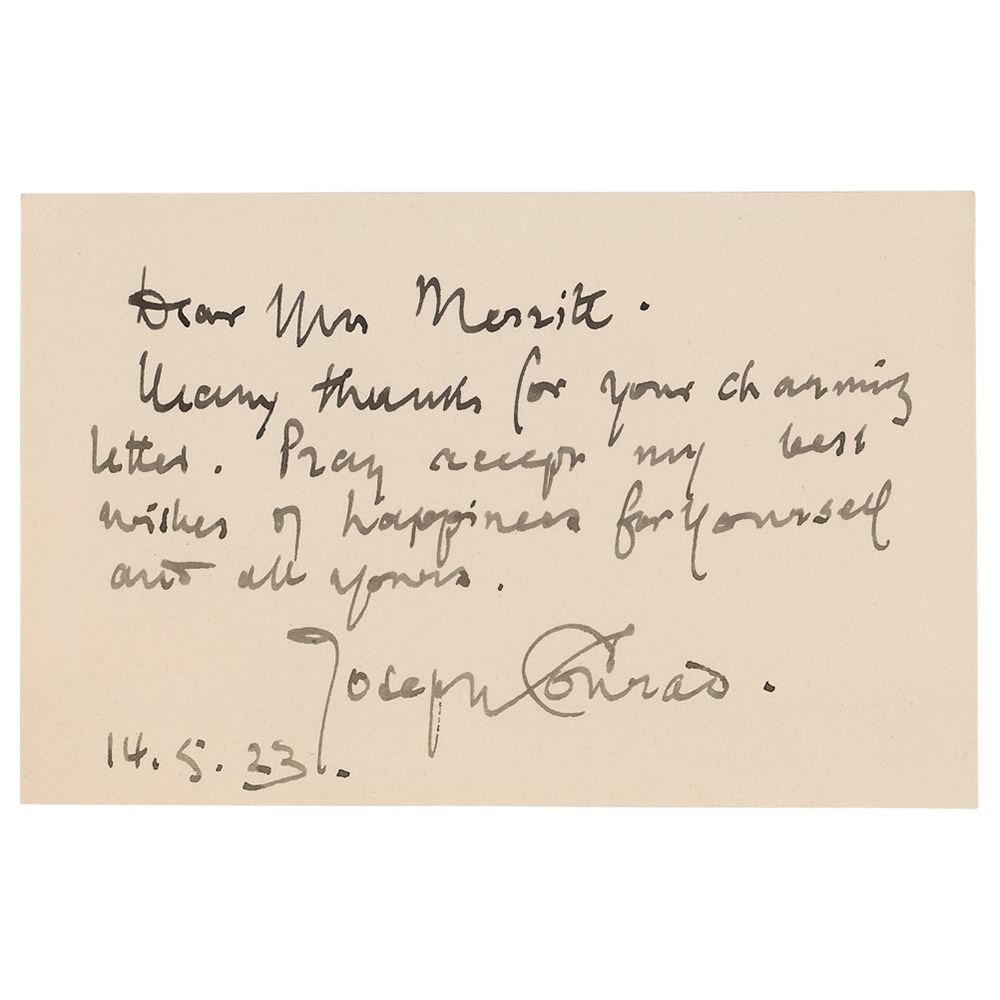 Dear Mrs Merritt.
Many thanks for your charming
letter. Pray accept my best
wishes of happiness for yourself
and all yours.
Joseph Conrad.
14.5.23.